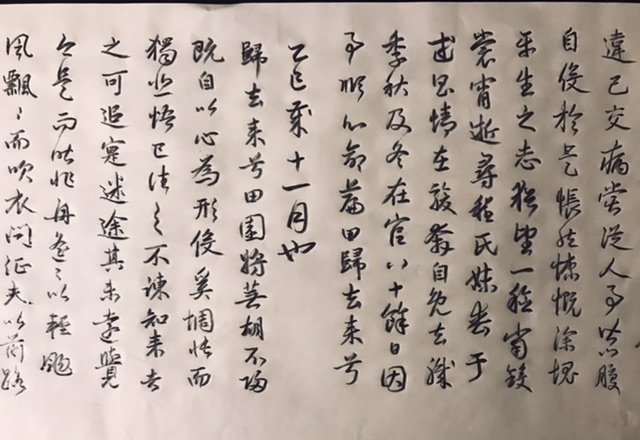 違己交病嘗從人事皆口腹
自役於是悵然慷慨深愧
平生之志猶望一稔當斂
裳宵逝尋程氏妹喪于
武昌情在駿奔自免去職
季秋及冬在官八十餘日因
事順心命篇曰歸去來兮
乙巳歲十一月也
歸去來兮田園將蕪胡不歸
既自以心為形役奚惆悵而
獨悲悟已往之不諫知來者
之可追寔迷途其未遠覺
今是而昨非舟遙〻以輕颺
風飄〻而吹衣問征夫以前路